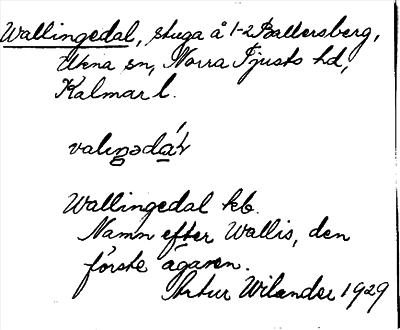 Wallingedal, stuga å 1-2 Ballersberg,
Ukna sn, Norra Tjusts hd,
Kalmar l.
valeŋədáʹr
Wallingedal kb.
Namn efter Wallis, den
förste ägaren.
Artur Wilander 1929